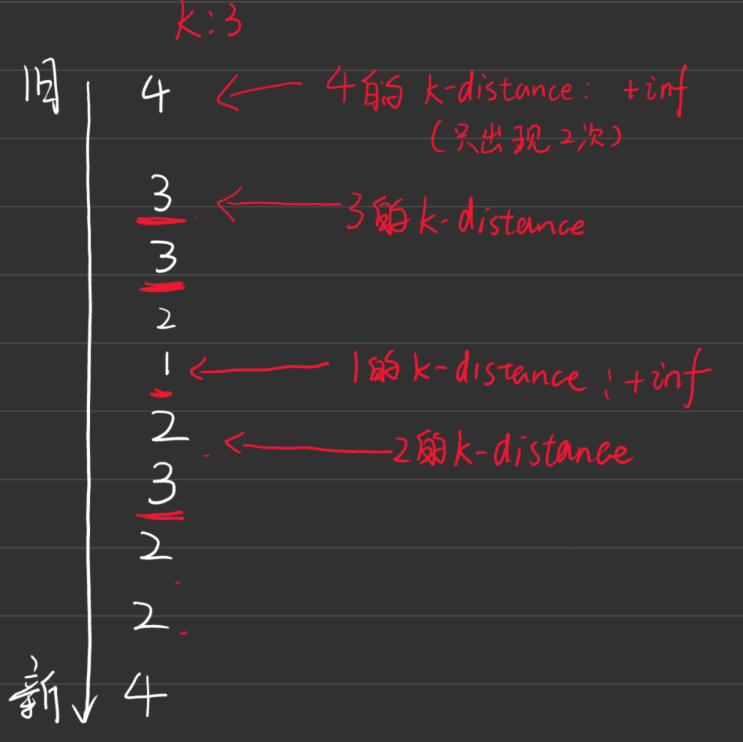 k:3
旧 4 4的 k-distance: +inf
(只出现2次)
3 3的k-distance
3
2
1 1的k-distance:+inf
2 2的k-distance
3
2
2
新 4